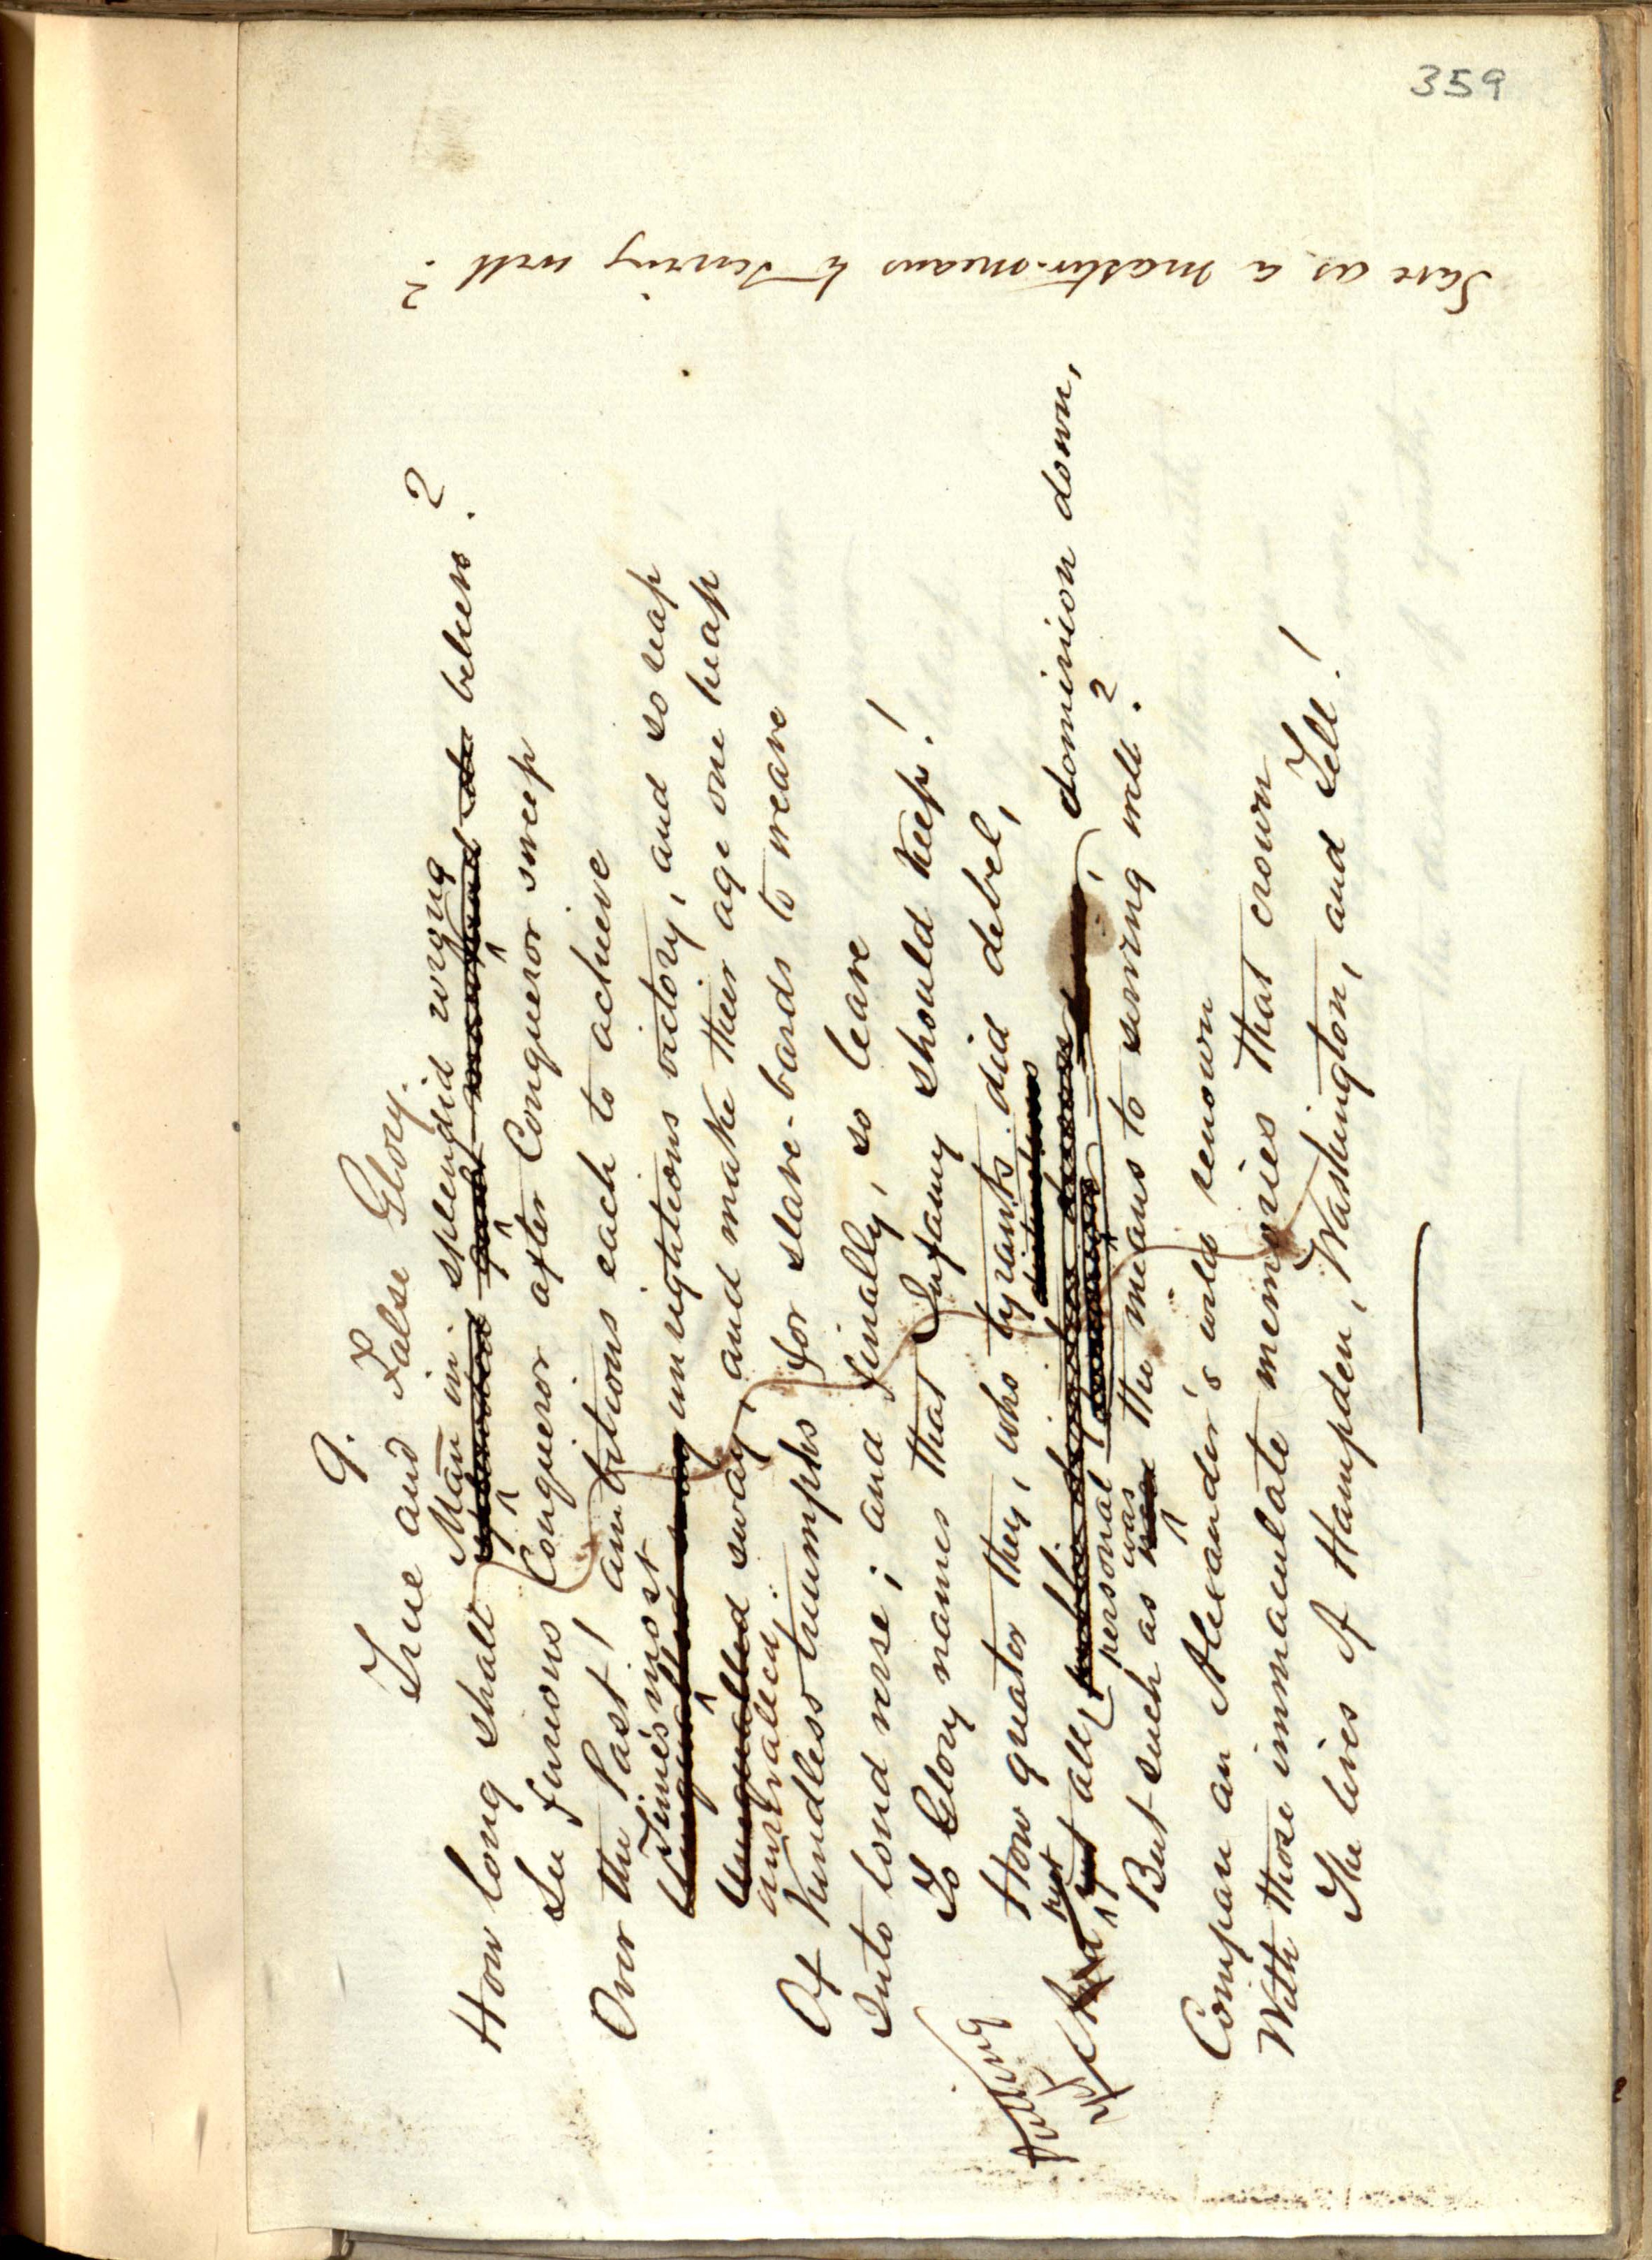 359
9.
True and False Glory.
How long shall Man in splendid wrong believe?
See furious Conqueror after Conqueror sweep
Over the Past! ambitious each to achieve
Time's most unrighteous victory, and so reap
unrivalled sway, and make their age one heap
Of kindless triumphs for slave-bards to weave
Into loud verse; and finally, so leave
To Glory names that Infamy should keep!
How greater they, who tyrants did debel,
put all personal dominion down,
But such as was the means to serving well?
Compare an Alexander's wild renown
With those immaculate memories that crown
The lives of Hampden, Washington, and Tell!
Save as a master-means to serving well?